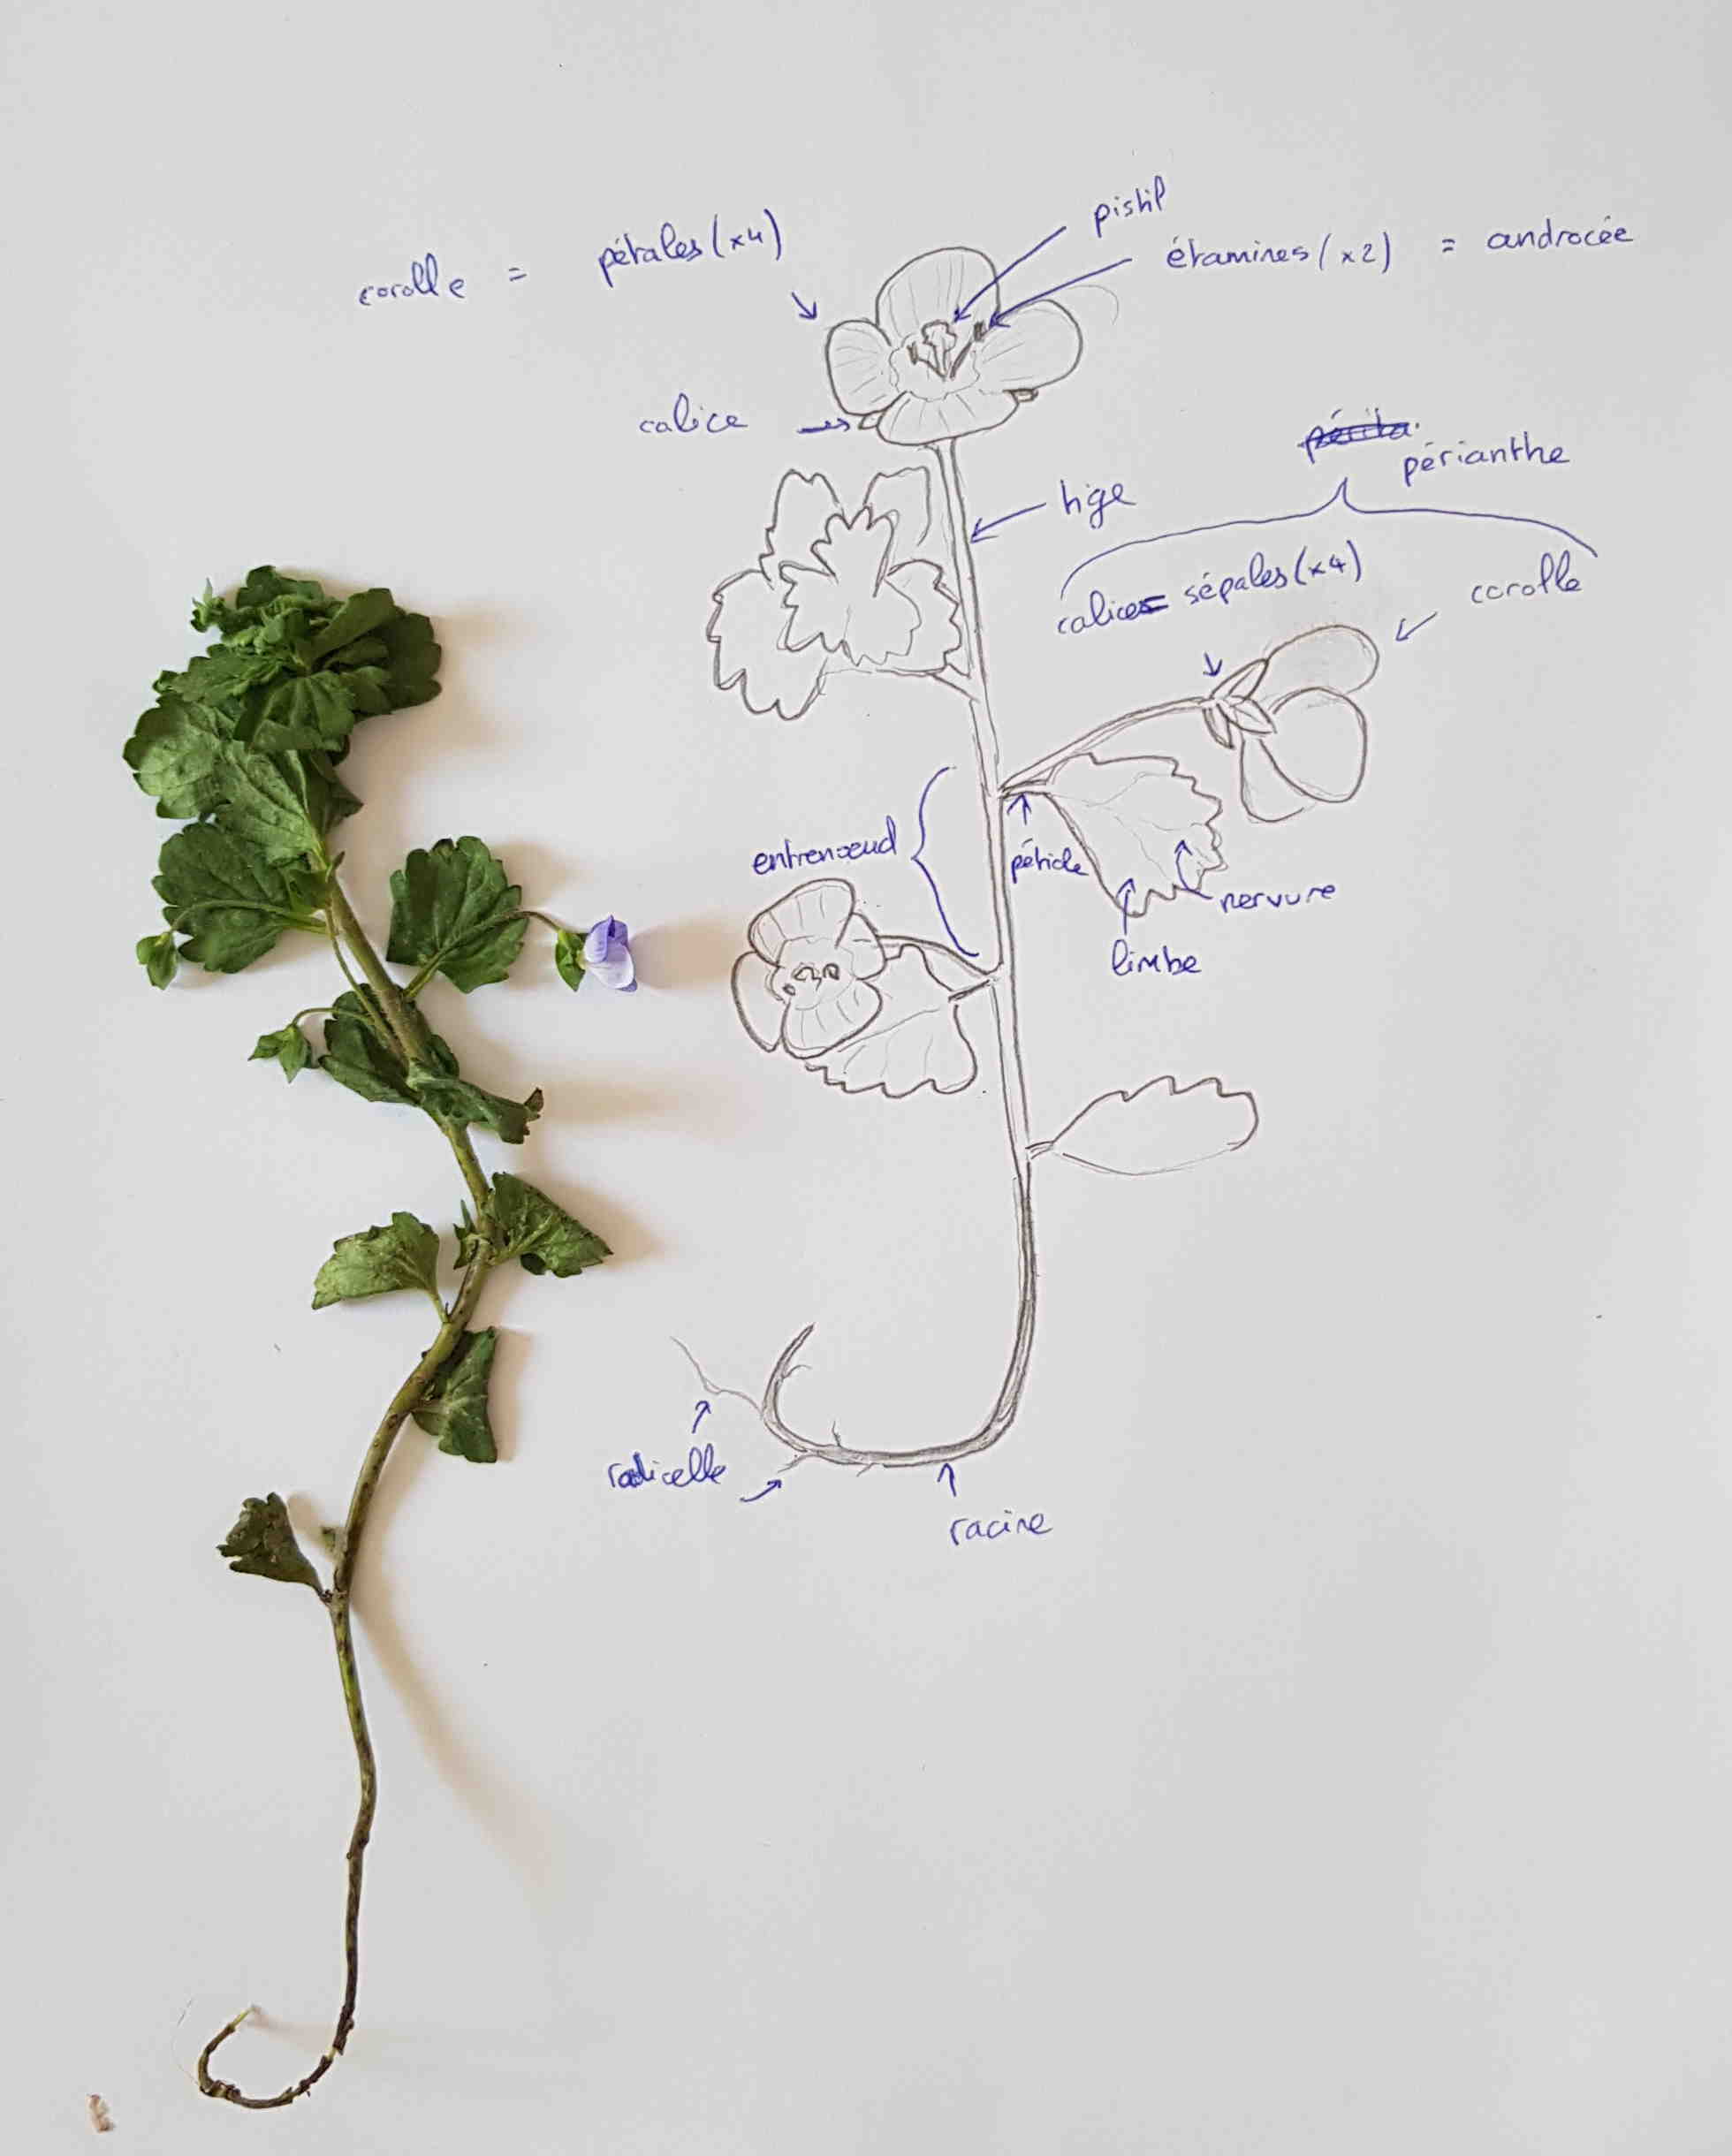 pistil
corolle = pétales (x4)
étamines (x2) = androcée
calice
périanthe
tige
calice= sépales (x4)
corolle
entrenoeud
pétiole
nervure
limbe
radicelle
racine